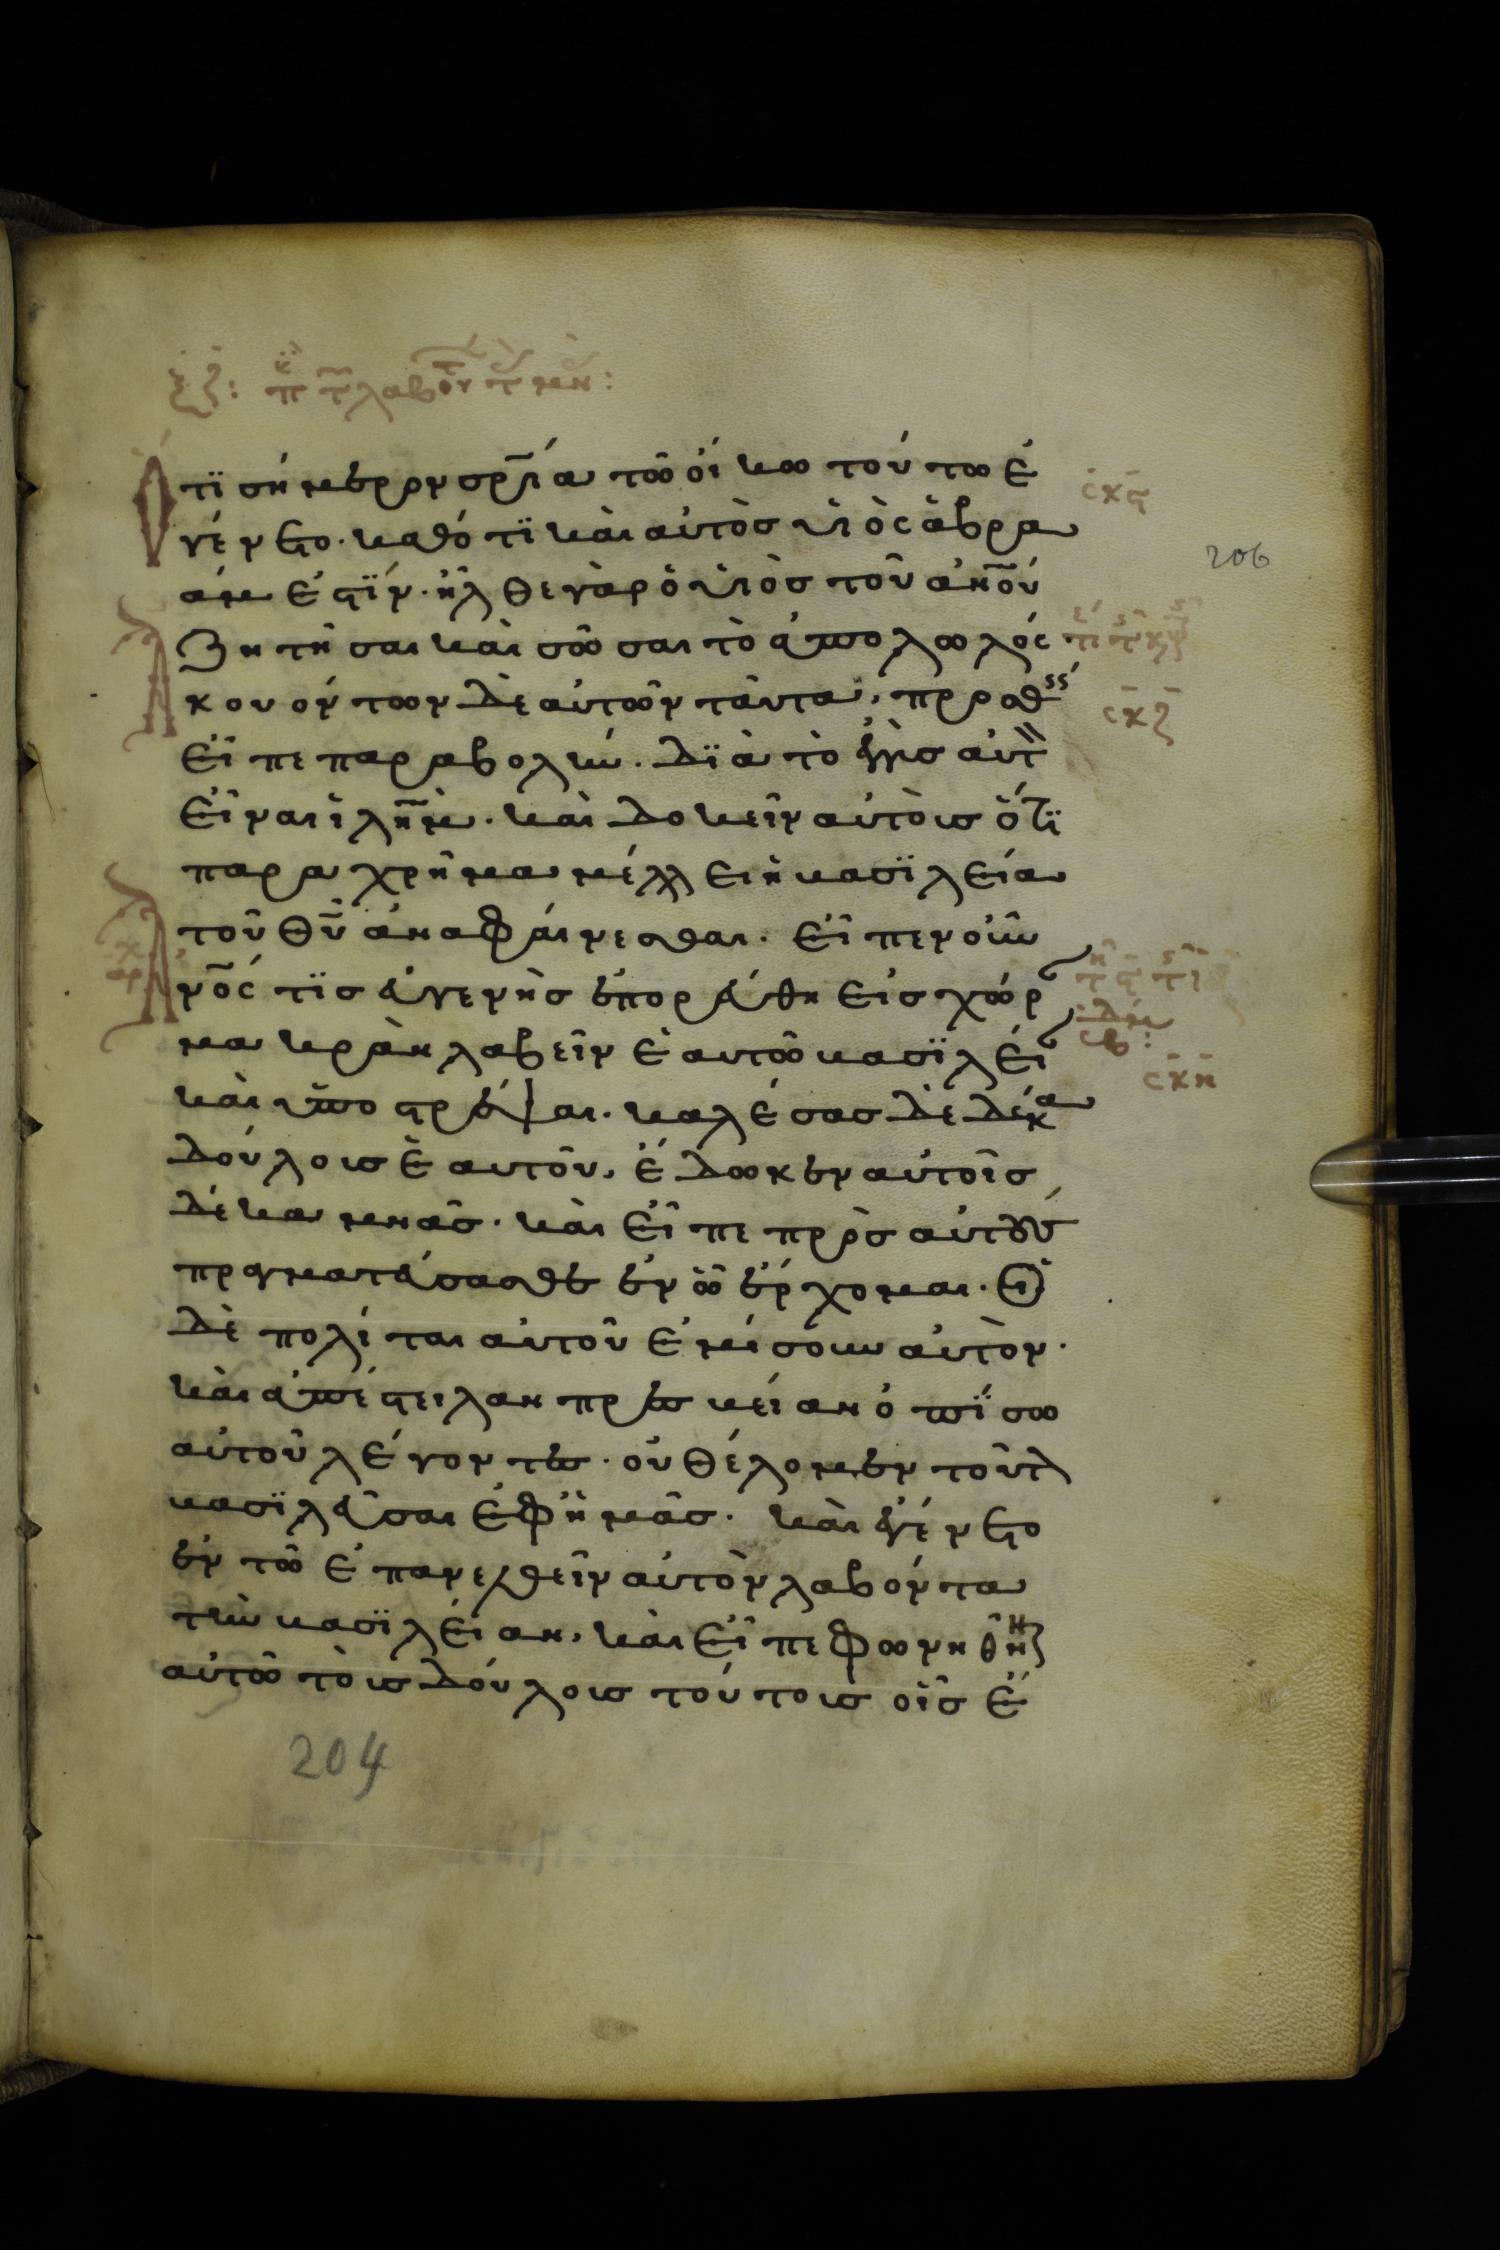 ξζ: π τ λαβον τ μν:
Ὅτϊ σήμερον σρία τῶ οἴκω τούτω ἐ
γένετο· καθότϊ καὶ αὐτὸσ υἱὸς ἀβρα
άμ ἐστϊν· ἦλθε γὰρ ὁ υἱὸσ τοῦ ανου
ζητῆσαι καὶ σῶσαι τὸ ἀπολωλός
Ἀκουόντων δὲ αὐτῶν ταῦτα, προσθ
εἶπε παραβολὴν· δϊὰ τὸ ἐγγὺσ αὐτ
εἶναι ἱλημ· καὶ δοκεῖν αὐτοὺσ ὅτϊ
παραχρῆμα μέλλει ἡ βασϊλεία
τοῦ θυ ἀναφαίνεσθαι· εἶπεν οὖν
Ἄνος τϊσ εὐγενὴσ ἐπορεύθη εἰσ χώρ
μακρὰν λαβεῖν ἑαυτῶ βασϊλεί
καὶ ὑποστρέψαι· καλέσασ δὲ δέκα
δούλουσ ἑαυτοῦ, ἔδωκεν αὐτοῖσ
δέκα μνᾶσ· καὶ εἶπε πρὸσ αὐτούσ
πραγματεύσασθε ἐν ὧ ἔρχομαι· οἱ
δὲ πολίται αὐτοῦ ἐμίσουν αὐτὸν·
καὶ ἀπέστειλαν πρεσβείαν ὀπϊσω
αὐτοῦ λέγοντεσ· οὐ θέλομεν τοῦτ
βασϊλεῦσαι ἐφ' ἡμᾶσ· καὶ ἐγένετο
ἐν τῶ ἐπανελθεῖν αὐτὸν λαβόντα
τὴν βασϊλείαν, καὶ εἶπε φωνηθῆν
αὐτῶ τοὺσ δούλουσ τούτουσ οἷσ ἔ
σκς
206
σκζ
σκη
204